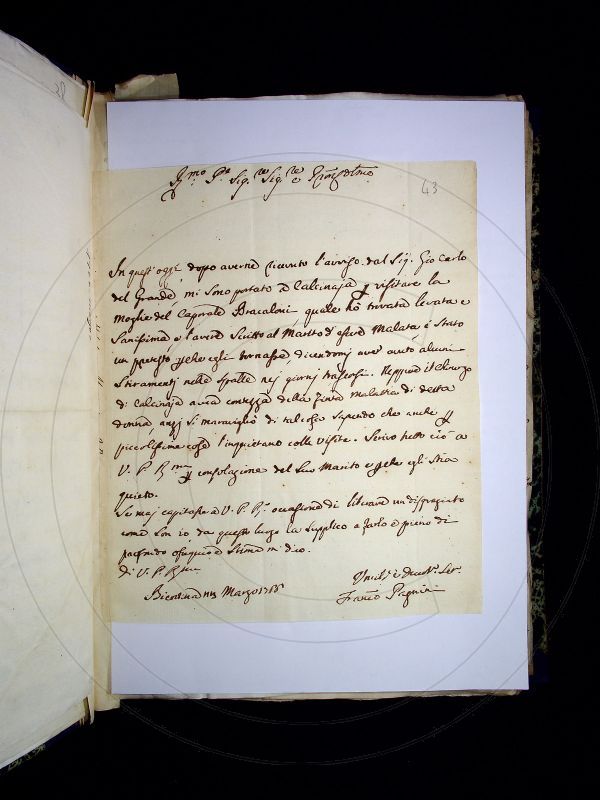 43
In quest'oggi dopo averne ricevuto l'avviso dal Sig. Gio Carlo
del Grande, mi sono portato a Calcinaja p visitare la
Moglie del Caporale Bracaloni, quale hò trovata levata e
Sanissima, e l'avere Scritto al Marito di essere Malata è Stato
un pretesto perche egli tornasse dicendomi aver avuto alcuni
Stiramenti nelle Spalle nej giorni trascorsi. Neppure il
di Calcinaja aveva contezza della finta malattia di detta
donna, anzj Si maravigliò di tal cosa sapendo che anche p
piccolissime cose l'inquietano colle visite. Scrivo tutto ciò a
V. P. R.ma p consolazione del Suo Marito e perche egli Stia
quieto.
Se maj capitasse a V. P. R. occasione di liberare un disgraziato
come Son io, da questo luogo la Supplico a farlo, e pieno di
profondo ossequio e Stima mi dico.
di V. P. R.ma
Bientina Marzo
Franco Pagnini